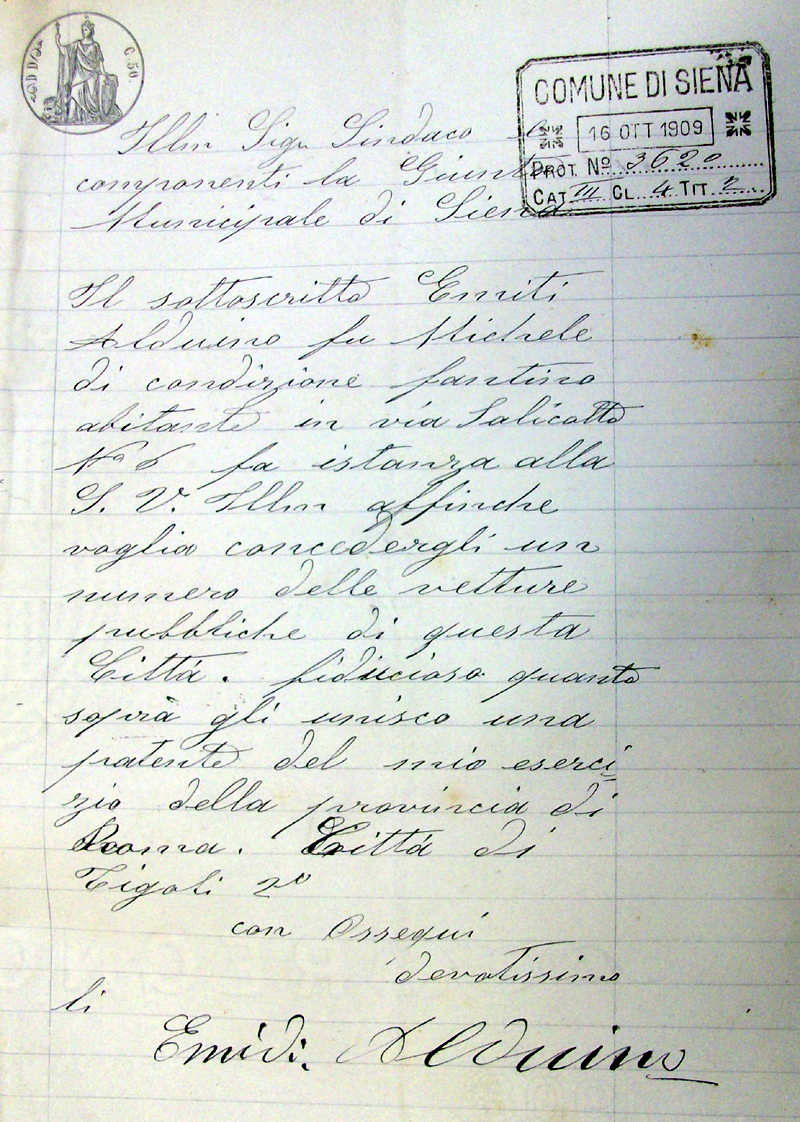 C. 50.
COMUNE DI SIENA
16 OTT 1909
PROT. Nº 3620
CAT III CL. 4 TIT. 2
Illm Sig. Sindaco e
componenti la Giunta
Municipale di Siena
Il sottoscritto Emiti
Alduino fu Michele
di condizione fantino
abitante in via Salicotto
Nº 6 fa istanza alla
S. V. Illm affinche
voglia concedergli un
numero delle vetture
pubbliche di questa
Città. fiducioso quanto
sopra gli unisco una
patente del mio eserci
zio della provincia di
Roma. Città di
con Ossequi
devotissimo
li
Emidi. Alduino